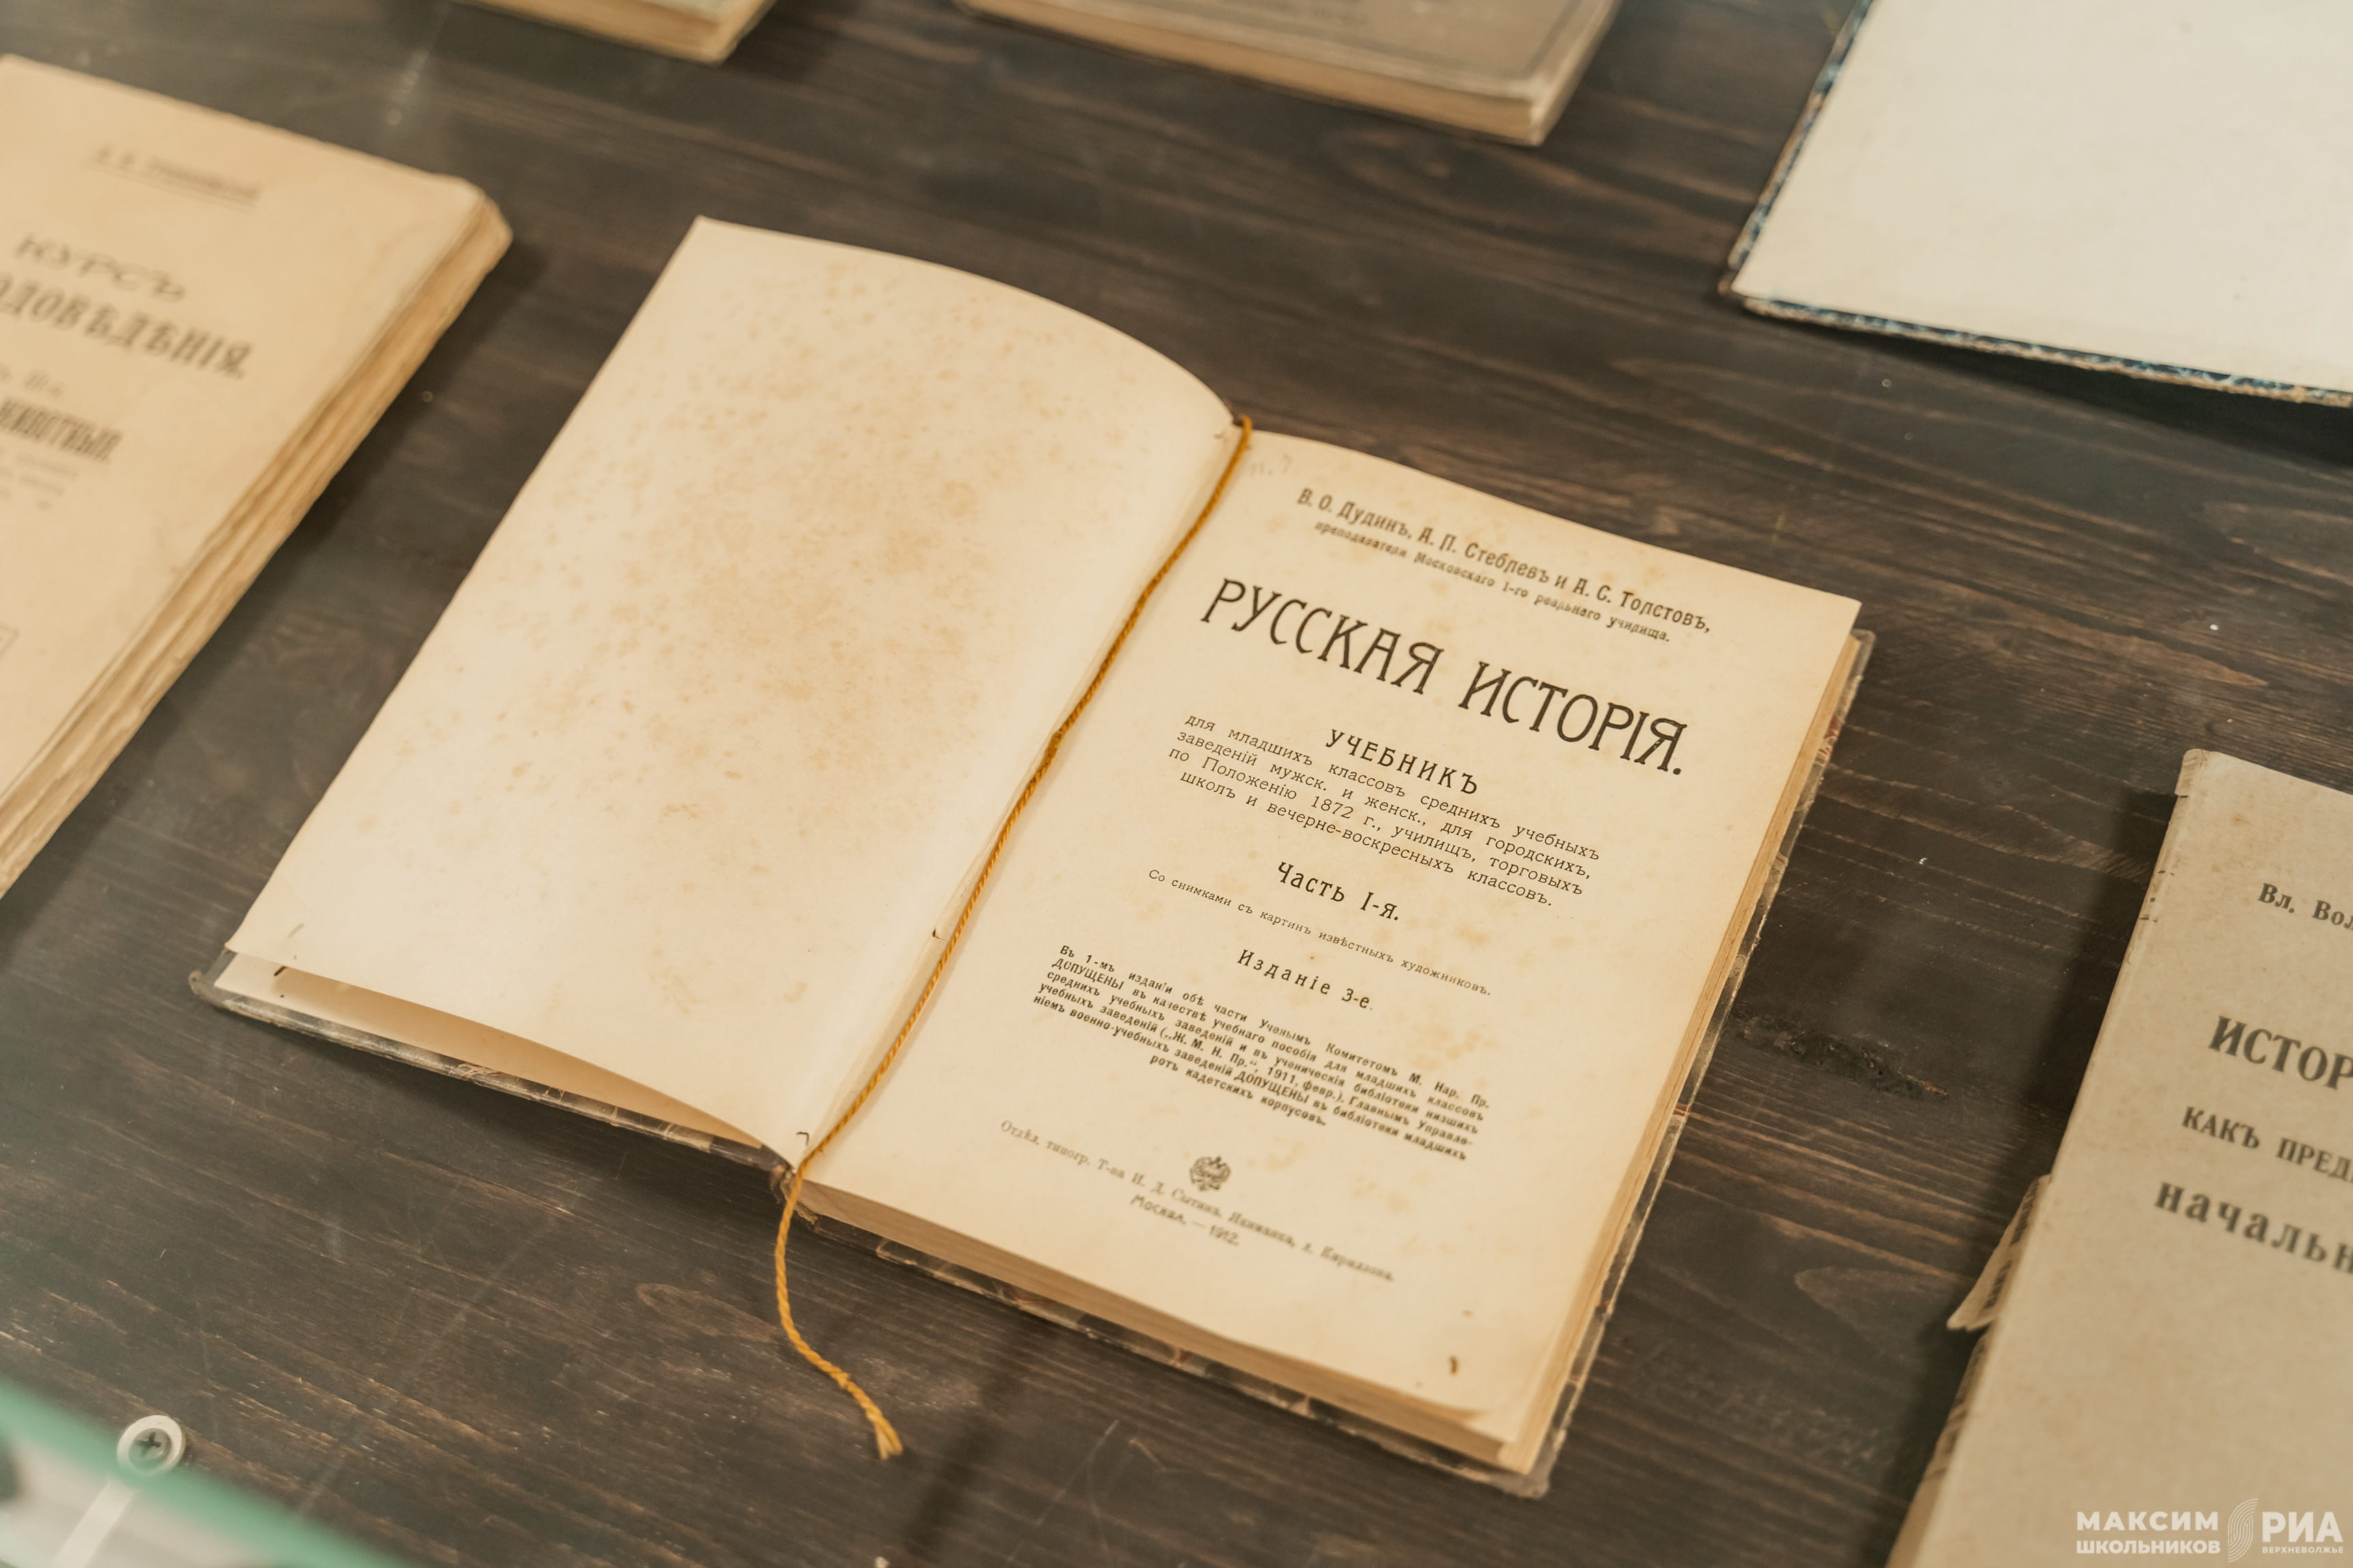 КУРСЪ
ОДОВѢДѢНІЯ.
ЖИВОТНЫЯ.
В. О. Дудинъ, А. П. Стеблевъ и А. С. Толстовъ,
преподаватели Московскаго 1-го реальнаго училища.
РУССКАЯ ИСТОРІЯ.
УЧЕБНИКЪ
для младшихъ классовъ среднихъ учебныхъ
заведеній мужск. и женск., для городскихъ,
по Положенію 1872 г., училищъ, торговыхъ
школъ и вечерне-воскресныхъ классовъ.
Часть I-я.
Со снимками съ картинъ извѣстныхъ художниковъ.
Изданіе 3-е.
Въ 1-мъ изданіи обѣ части Ученымъ Комитетомъ М. Нар. Пр.
ДОПУЩЕНЫ въ качествѣ учебнаго пособія для младшихъ классовъ
среднихъ учебныхъ заведеній и въ ученическія библіотеки низшихъ
учебныхъ заведеній („Ж. М. Н. Пр.“, 1911, февр.). Главнымъ Управле-
ніемъ военно-учебныхъ заведеній ДОПУЩЕНЫ въ библіотеки младшихъ
ротъ кадетскихъ корпусовъ.
Отдѣл. типогр. Т-ва И. Д. Сытина, Пименовск., д. Кириллова.
Москва. — 1912.
Вл. Вол
ИСТОР
КАКЪ ПРЕД
начальн
МАКСИМ
ШКОЛЬНИКОВ
РИА
ВЕРХНЕВОЛЖЬЕ